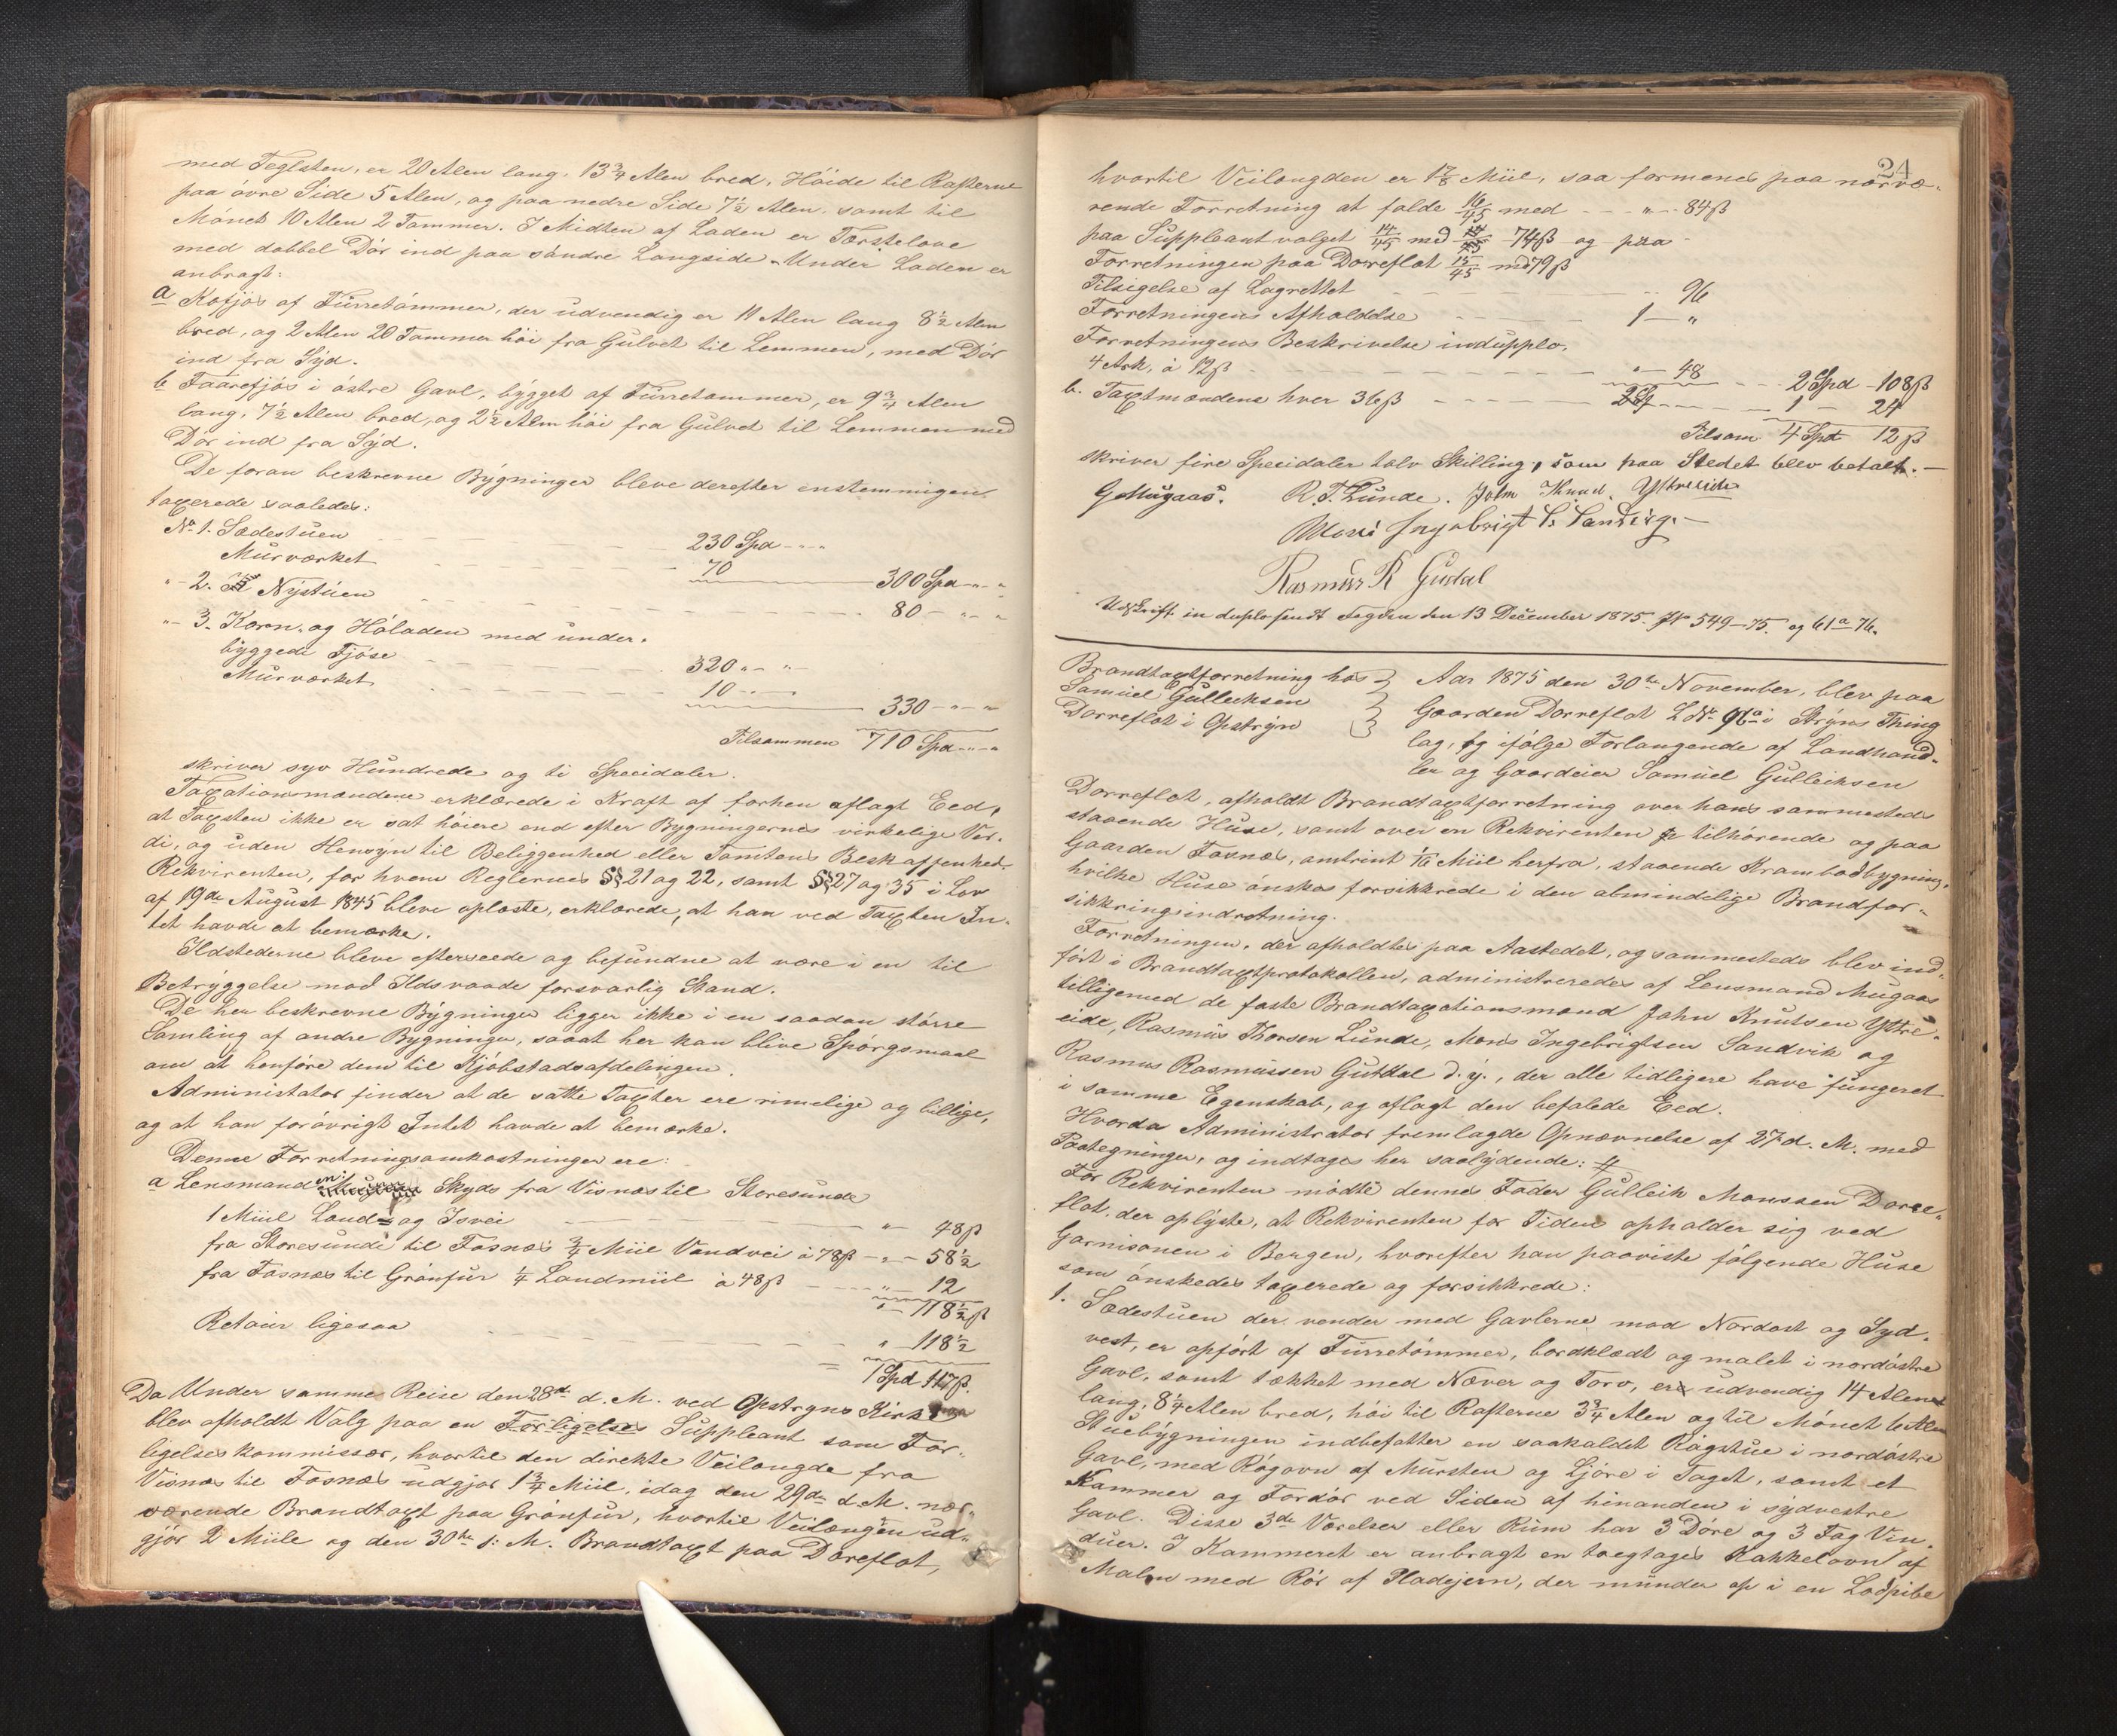 med Teglsten, er 20 Alen lang, 13 3/4 Alen bred, Höide til Rafterne
paa övre Side 5 Alen, og paa nedre Side 7 1/2 Alen, samt til
Mönet 10 Alen 2 Tommer. I Midten af Laden er Tærskelove
med dobbel Dör ind paa söndre Langside. Under Laden er
anbragt:
a Kofjös af Fürretömmer, der udvendig er 11 Alen lang 8 1/2 Alen
bred, og 2 Alen 20 Tommer höi fra Gülvet til Lemmen, med Dör
ind fra Syd.
b Faarefjös i östre Gavl, bygget af Fürretømmer, er 9 3/4 Alen
lang, 7 1/2 Alen bred, og 2 1/2 Alen höi fra Gulvet til Lemmen med
Dör ind fra Syd.
De foran beskrevne Bygninger bleve derefter enstemmigen
taxerede saaledes:
No 1. Sædestüen 230 Spd - "
Mürværket 70 300 Spd - "
" 2. Nystüen 80 - "
" 3. Korn- og Höladen med under-
byggede Fjöse 320 " - "
Mürværket 10 - " 330 - " - "
Tilsammen 710 Spd - " - "
skriver syv Hündrede og ti Specidaler.
Taxationsmændene erklærede i Kraft af forhen aflagt Eed,
at Taxten ikke er sat höiere end efter Bygningernes virkelige Vær-
di, og uden Hensyn til Beliggenhed eller Tomtens Beskaffenhed.
Rekvirenten, for hvem Reglernes §§ 21 og 22, samt §§ 27 og 35 i Lov
af 19de August 1845 bleve oplæste, erklærede, at han ved Taxten In-
tet havde at bemærke.
Ildstederne bleve efterseede og befundne at være i en til
Betryggelse mod Ildsvaade forsvarlig Stand.
De her beskrevne Bygninger ligger ikke i en saadan större
Samling af andre Bygninger, saaat her kan blive Spörgsmaal
om at henföre dem til Kjöbstadsafdelingen.
Administrator finder at de satte Taxter ere rimelige og billige,
og at han forövrigt Intet havde at bemærke.
Denne Forretningsomkostninger ere:
a Lensmanden Skyds fra Visnæs til Storesunde
1 Miil Land- og Isvei " 48 ß
fra Storesunde til Fosnæs 3/4 Miil Vandvei à 78 ß - " - 58 1/2
fra Fosnæs til Grönfur 1/4 Landmiil à 48 ß " 12
" - 118 1/2 ß
Retoür ligesaa " 118 1/2
= 1 Spd 117 ß.
Da Under samme Reise den 28de d. M. ved Opstryns Kirke
blev afholdt Valg paa en Forligelses Süppleant som For-
ligelseskommissær, hvortil den direkte Veilængde fra
Visnæs til Fosnæs udgjör 1 3/4 Miil, idag den 29de d. M. nær-
værende Brandtaxt paa Grönfür, hvortil Veilængden ud-
gjör 2 Miile og den 30te d. M. Brandtaxt paa Doreflot,
24
hvortil Veilængden er 1 7/8 Miil, saa formenes paa nærvæ-
rende Forretning at falde 16/45 med - - " 84 ß
paa Suppleantvalget 14/45 med 74 ß og paa
Forretningen paa Dorreflot 15/45 med 79 ß
Tilsigelse af Lagrettet 96
Forretningens Afholdelse 1 - "
Forretningens Beskrivelse in dupplo,
4 Ark, à 12 ß " - 48 2 Spd - 108 ß
b. Taxtmændene hver 36 ß 1 - 24
Tilsam 4 Spd 12 ß
skriver fire Specidaler tolv Skilling, som paa Stedet blev betalt.
G Mugaas. R. T. Lunde. John Knud. Ystreeide
Mons Ingebrigt S. Sandvig.
Rasmus R Gudal
Udskrift in duplo sendt Fogden den 13 December 1875. J No 549-75. og 61a 76.
Brandtaxtforretning hos
Samüel Gülleiksen
Dorreflot i Opstryn
Aar 1875 den 30te November, blev paa
Gaarden Dorreflot L No 96a i Stryns Thing
lag, ifölge Forlangende af Landhand-
ler og Gaardeier Samüel Gülleiksen
Dorreflot, afholdt Brandtaxtforretning over hans sammesteds
staaende Huse, samt over en Rekvirenten tilhörende og paa
Gaarden Fosnæs, omtrint 1/16 Miil herfra, staaende Krambodbygning,
hvilke Huse önskes forsikkrede i den almindelige Brandfor-
sikkringsindretning.
Forretningen, der afholdtes paa Aastedet, og sammesteds blev ind-
fört i Brandtaxtprotokollen, administreredes af Lensmand Mugaas
tilligemed de faste Brandtaxationsmænd John Knutsen Ystre-
eide, Rasmüs Thorsen Lunde, Mons Ingebrigtsen Sandvik og
Rasmus Rasmüssen Gutdal d. y., der alle tidligere have fungeret
i samme Egenskab, og aflagt den befalede Eed.
Hvorda Administrator fremlagde Opnævnelse af 27 d. M. med
Paategninger, og indtages her saalydende: #
For Rekvirenten mödte dennes Fader Gülleik Monssen Dorre-
flot, der oplyste, at Rekvirenten for Tiden opholder sig ved
Garnisonen i Bergen, hvorefter han paaviste fölgende Huse
som önskedes taxerede og forsikkrede:
1. Sædestuen der vender med Gavlerne mod Nordost og Syd-
vest, er opfört af Fürretömmer, bordklædt og malet i nordöstre
Gavl, samt tækket med Næver og Torv, er udvendig 14 Alen
lang, 8 1/4 Alen bred, höi til Rafterne 3 3/4 Alen og til Mönet 6 Alen
Stuebygningen indbefatter en saakaldet Rögstue i nordöstre
Gavl, med Rögovn af Mürsten og Ljöre i Taget, samt et
Kammer og Fordör ved Siden af hinanden i sydvestre
Gavl. Disse 3de Værelser eller Rüm har 3 Döre og 3 Fag Vin-
düer. I Kammeret er anbragt en toetages Kakkelovn af
Malm med Rör af Pladejern, der münder op i en Lodpibe